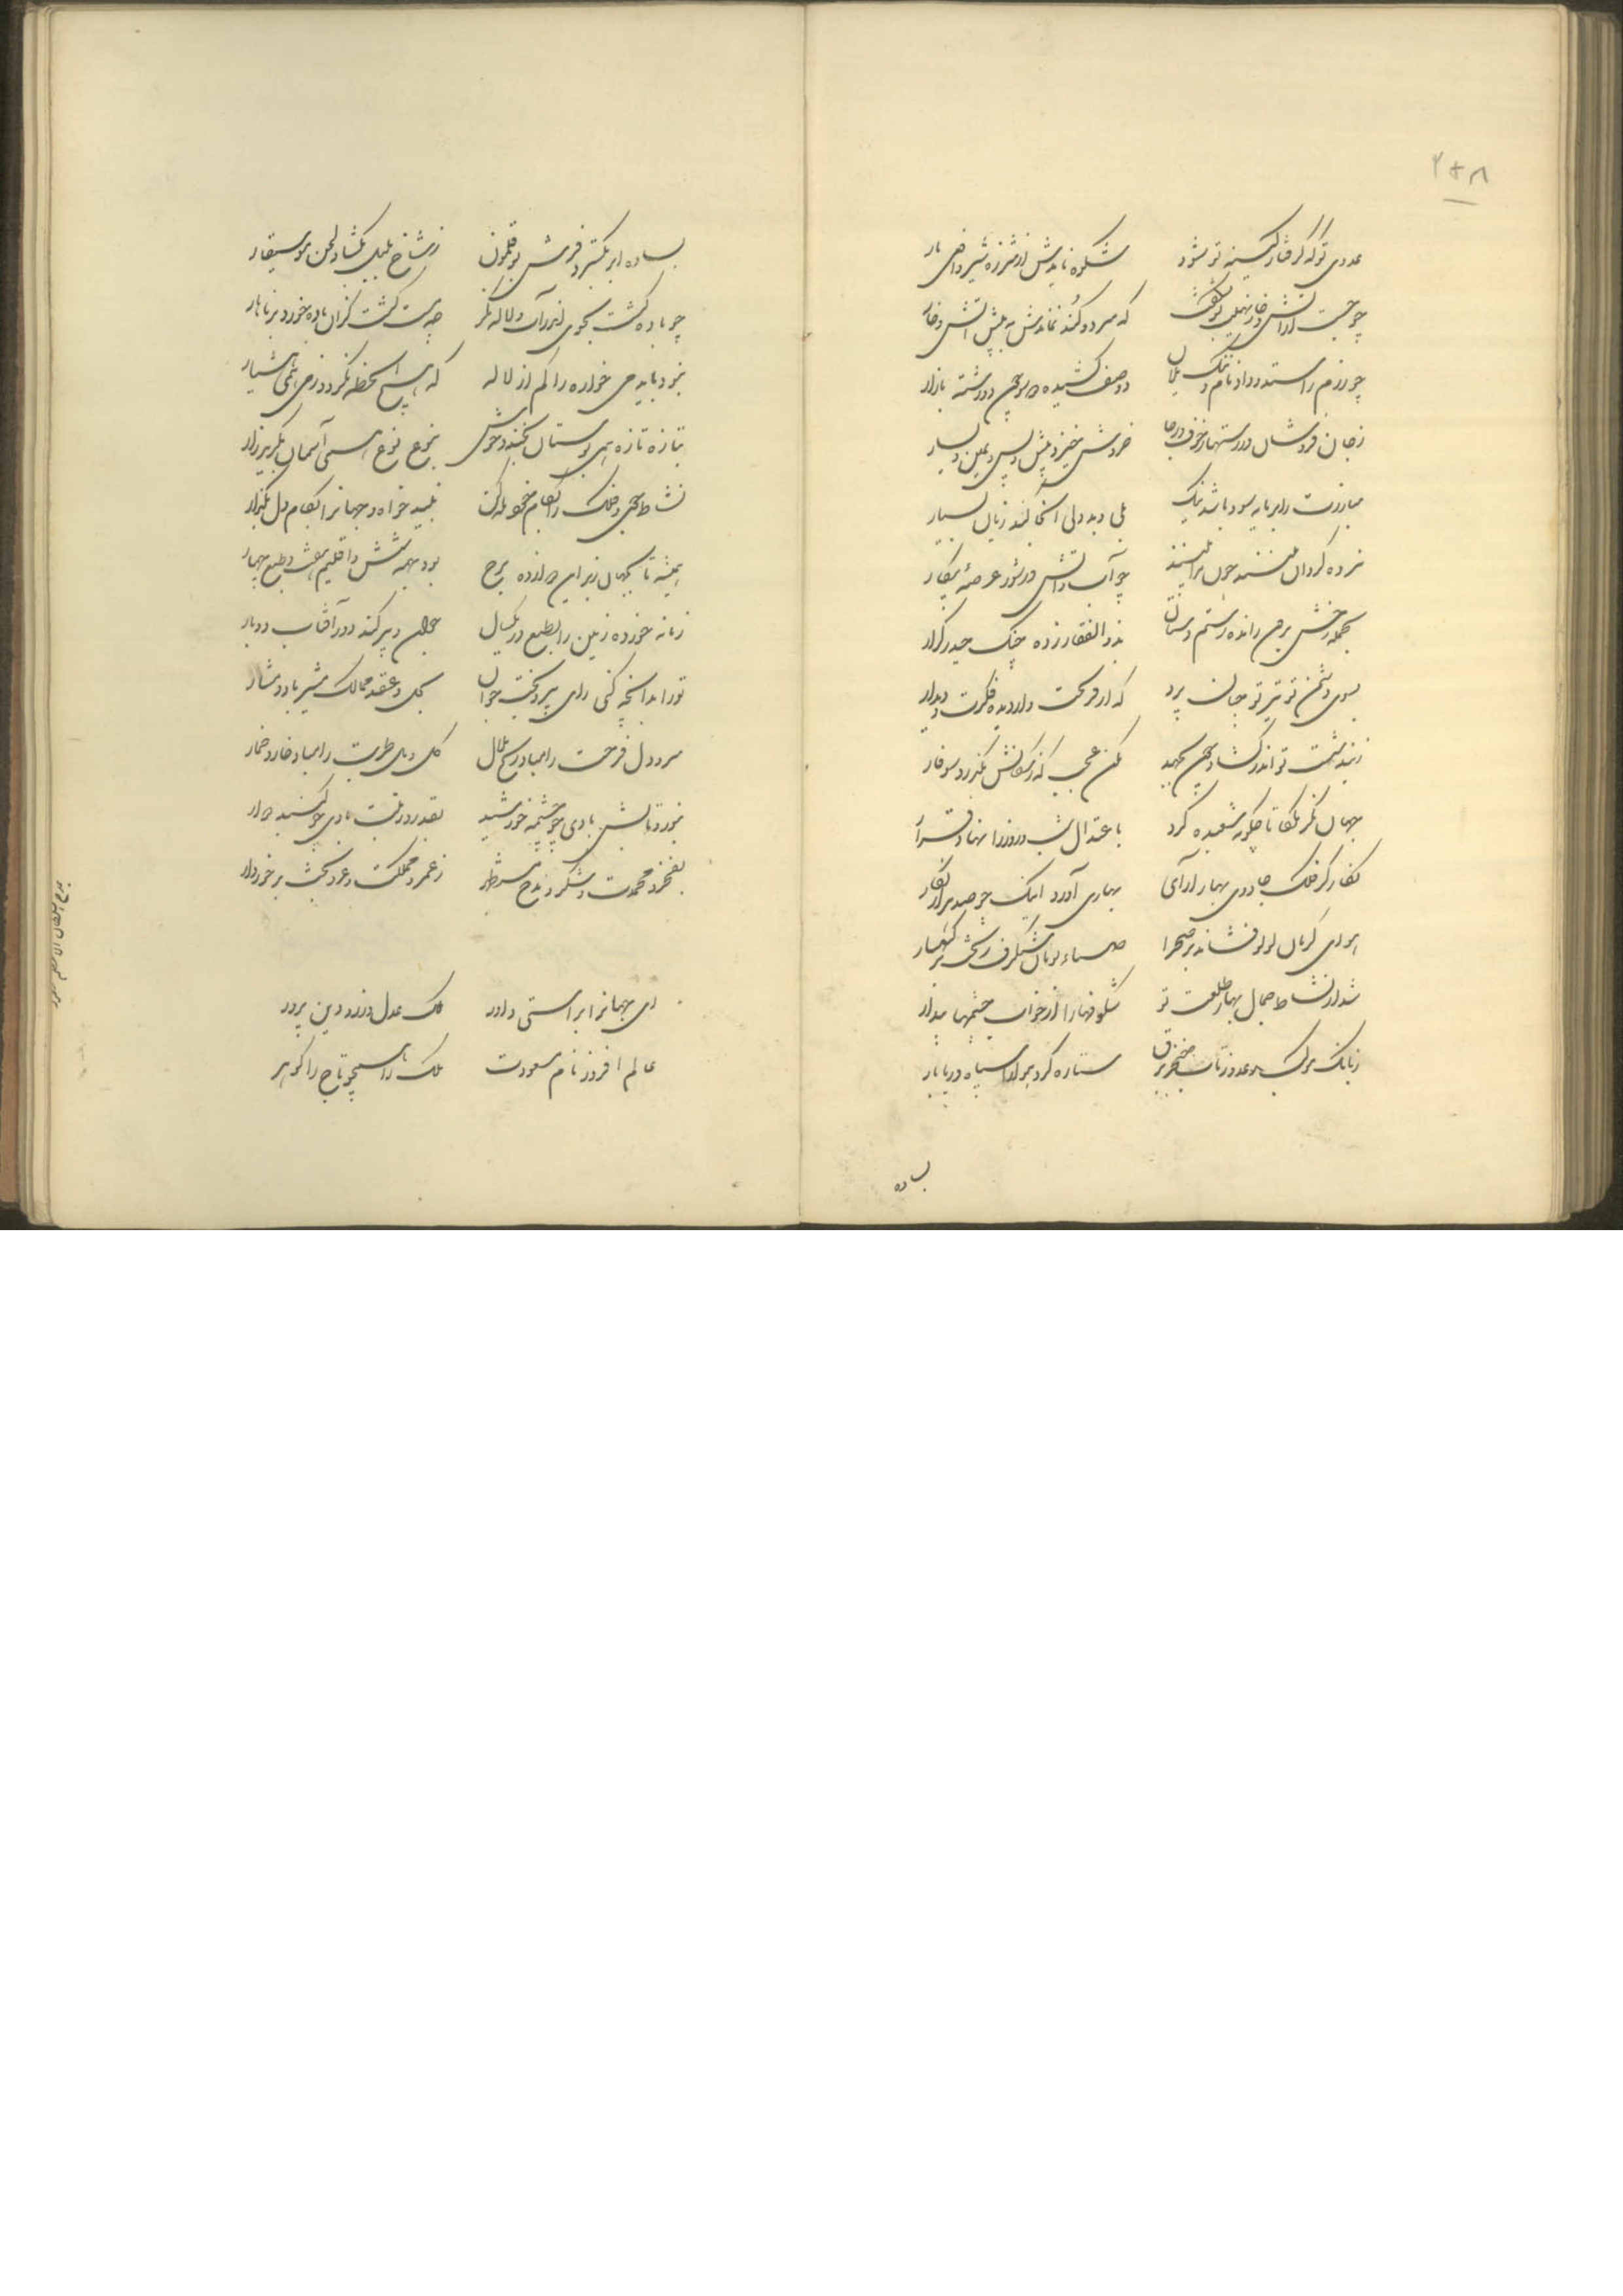 ۲۰۸
عدوی تو که گرفتار کینه تو شود شکوه نایدش از شرزه شیر و افعی مار
چو جست از آتش و خار نهیب تو بگذشت که سرد و کند نماندش به پیش آتش و خار
چو رزم را ستد و داد نام و ننگ یلان دو صف کشیده چو بینی دو رسته بازار
ز جان فروشان در رستهای خوف و رجا خروش خیزد پیش و پس و یمین و یسار
مبارزت را بر مایه سود باشد نیک بلی و بددلی آنجا کند زیان بسیار
نبرده گردان بینند چون تو را بینند چو آب و آتش در شور عرصه پیکار
بحمله رخش برون رانده رستم دستان بذوالفقار زده چنگ حیدر کرار
بسوی دشمن تو تیر تو چنان پرد که از فراست دارد دیده فکرت و دیدار
ز بند شست تو اندر گشاد چون بجهد مکن عجب که ز پیکانش بگذرد سوفار
جهان نگر ملکا تا چگونه شعبده کرد باعتدال شب و روز را نهاد قرار
نگار کر فلک جادوی بهار آرای بهاری آورد اینک چو صد هزار نگار
هوای گریان لولو فشاند بر صحرا صبای پویان شنگرف ریخت بر کهسار
شد از نشاط جمال بهار طلعت تو شکوفها را از خواب چشمها بیدار
ز بانگ مرکب رعد و ز تاب خنجر برق ستاره کرد هوا را سپاه دریا بار
بساده
بساده ابر بگسترد فرش بوقلمون ز شاخ بلبل بگشاد لحن موسیقار
چو باده گشت بجوی اندر آب و لاله نگر چه مست گشت کزان باده خورد بر ناهار
نمود باید می خواره را کم از لاله که هیچ لحظه نگردد ز می همی هشیار
بتازه تازه همی بوستان بخند و خوش بنوع نوع همی آسمان بگرید زار
نشاط جوی و فلک را بکام خویش بکن نبید خواه و جهان را بکام دل بگذار
همیشه تا بجهان زیر این دوازده برج بود جهه شش و اقلیم هفت و طبع چهار
زمانه خورده زمین را بطبع در یکسال جوان و پیر کند دور آفتاب دو بار
تو را بدانچه کنی رای پیر و بخت جوان بحل و عقد ممالک مشیر باد و مشار
سر و دل فرحت را مباد رنج ملال گل و مل طربت را مباد خار و خمار
بنور و تابش بادی چو چشمه خورشید بقدر و رتبت بادی چو گنبد دوار
بفخر و محمدت و شکر و مدح مستظهر ز عمر و مملکت و عز و بخت برخوردار
ای جهان را براستی داور ملک عدل ورز دین پرور
عالم افروز نام مسعودت ملک را همچو تاج را گوهر